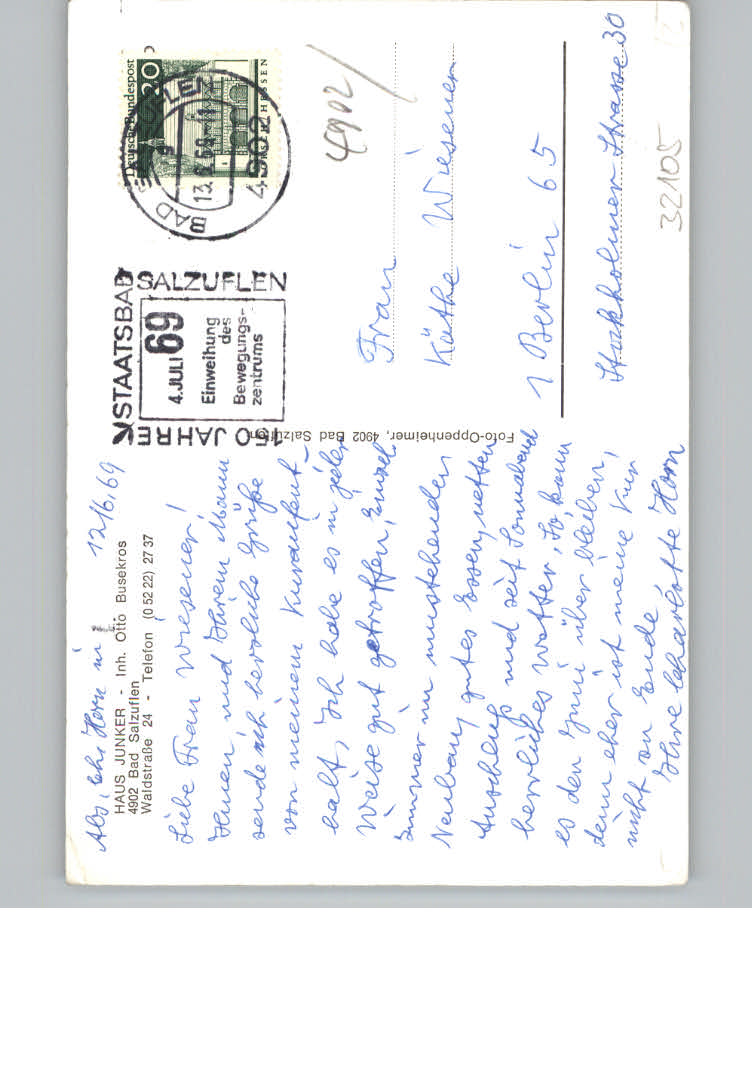 Abs. Ch. Horn in
12/6.69
HAUS JUNKER - Inh. Otto Busekros
4902 Bad Salzuflen
Waldstraße 24 - Telefon (0 52 22) 27 37
Liebe Frau Wiesener!
Ihnen und Ihrem Mann
sende ich herzliche Grüße
von meinem Kuraufent-
halt, Ich habe es in jeder
Weise gut getroffen, Einzel
zimmer im nustehenden
Neubau, gutes Essen, netten
Anschluß und seit Sonnabend
herrliches Wetter, So kann
es den Juni über bleiben,
denn eher ist meine Kur
nicht zu Ende,
Ihre Charlotte Horn
Foto-Oppenheimer, 4902 Bad Salzuflen
150 JAHRE
STAATSBAD
SALZUFLEN
4. JULI 69
Einweihung
des
Bewegungs-
zentrums
Deutsche Bundespost
20
HESSEN
BAD SALZUFLEN
13.6.69
4902
4902/
Frau
Käthe Wiesener
1 Berlin 65
Stockholmer Strasse 30
32105